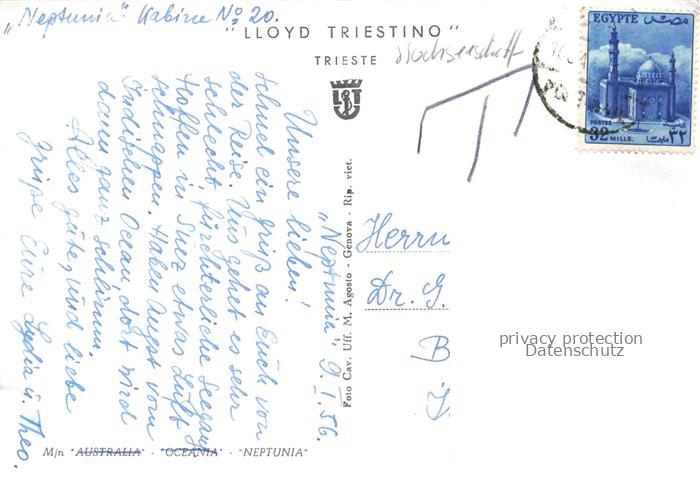 „Neptunia" Kabine No 20.
"LLOYD TRIESTINO"
TRIESTE
"Neptunia" 9. I. 56.
Unsere lieben!
schnell ein Gruß an Euch von
der Reise. Uns geht es sehr
schlecht, fürchterliche Seegang
Hoffen in Suez etwas Luft
schnappen. Haben Angst vom
Indischen Ocean dort wird
dann ganz schlimm.
Alles gute, und liebe
Grüße Eure Lydia u. Theo.
M/n "AUSTRALIA" - "OCEANIA" - "NEPTUNIA"
Foto Cav. Uff. M. Agosto - Genova - Rip. viet.
EGYPTE مصر
POSTES
32 MILLS. ٣٢ مليم
Herrn
Dr. G.
B
privacy protection
Datenschutz